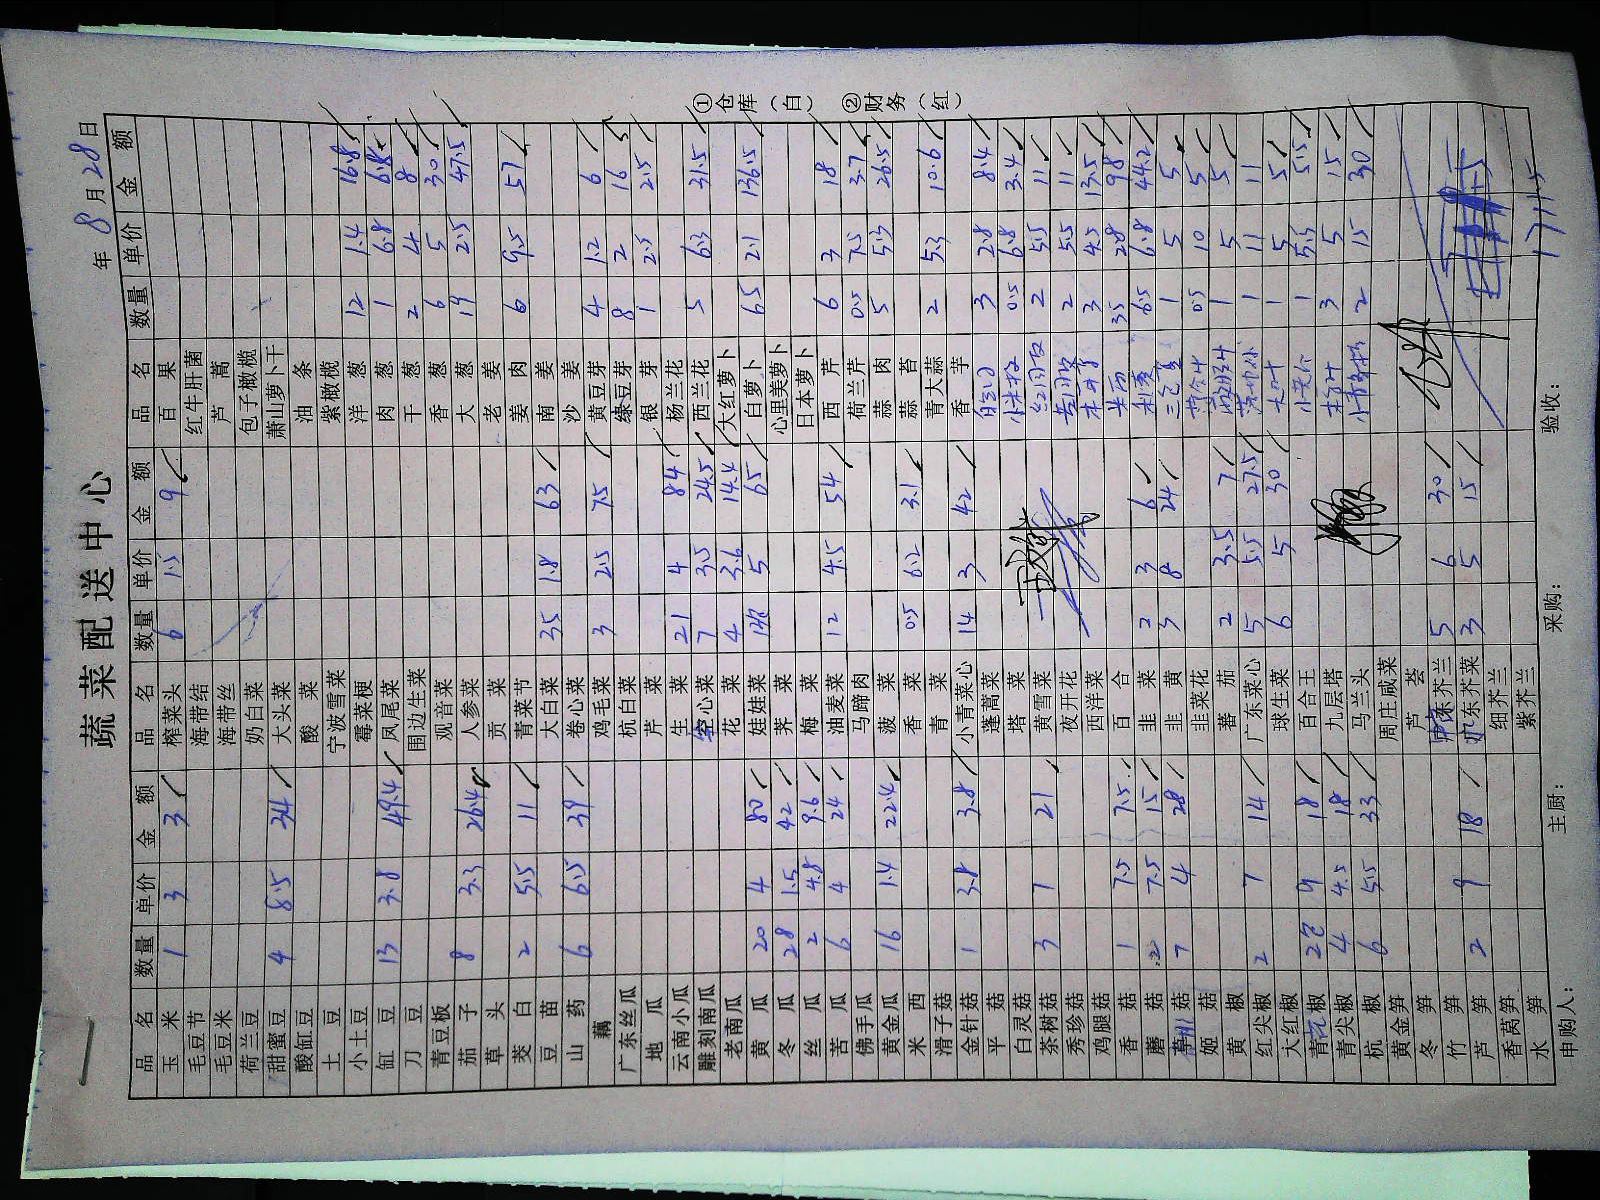 蔬菜配送中心
年 8 月 28 日
品名 数量 单价 金额 品名 数量 单价 金额 品名 数量 单价 金额
玉米 1 3 3 榨菜头 6 1.5 9 百果
毛豆节 海带结 红牛肝菌
毛豆米 海带丝 芦蒿
荷兰豆 奶白菜 包子橄榄
甜蜜豆 4 8.5 34 大头菜 萧山萝卜干
酸缸豆 酸菜 油条
土豆 宁波雪菜 紫橄榄
小土豆 霉菜梗 洋葱 12 1.4 16.8
缸豆 13 3.8 49.4 凤尾菜 肉葱 1 6.8 6.8
刀豆 围边生菜 干葱 2 4 8
青豆板 观音菜 香葱 6 5 30
茄子 8 3.3 26.4 人参菜 大葱 19 2.5 47.5
草头 贡菜 老姜
茭白 2 5.5 11 青菜节 姜肉 6 9.5 57
豆苗 大白菜 35 1.8 63 南姜
山药 6 6.5 39 卷心菜 沙姜
藕 鸡毛菜 3 2.5 7.5 黄豆芽 4 1.2 6
广东丝瓜 杭白菜 绿豆芽 8 2 16
地瓜 芹菜 银芽 1 2.5 2.5
云南小瓜 生菜 21 4 84 杨兰花
雕刻南瓜 空心菜 7 3.5 24.5 西兰花 5 6.3 31.5
老南瓜 花菜 4 3.6 14.4 大红萝卜
黄瓜 20 4 80 娃娃菜 5 65 白萝卜 65 2.1 136.5
冬瓜 28 1.5 42 荠菜 心里美萝卜
丝瓜 2 4.8 9.6 梅菜 日本萝卜
苦瓜 6 4 24 油麦菜 12 4.5 54 西芹 6 3 18
佛手瓜 马蹄肉 荷兰芹 0.5 7.5 3.7
黄金瓜 16 1.4 22.4 菠菜 蒜肉 5 5.3 26.5
米西 香菜 0.5 6.2 3.1 蒜苔
滑子菇 青菜 青大蒜 2 5.3 10.6
金针菇 1 3.8 3.8 小青菜心 14 3 42 香芋
平菇 蓬蒿菜 3 2.8 8.4
白灵菇 塔菜 小米椒 0.5 6.8 3.4
茶树菇 3 7 21 黄雪菜 红圆椒 2 5.5 11
秀珍菇 夜开花 黄圆椒 2 5.5 11
鸡腿菇 西洋菜 3 4.5 13.5
香菇 1 7.5 7.5 百合 35 2.8 98
蘑菇 2 7.5 15 韭菜 2 3 6 6.5 6.8 44.2
草菇 7 4 28 韭黄 3 8 24 1 5 5
姬菇 韭菜花 0.5 10 5
黄椒 番茄 2 3.5 7 1 5 5
红尖椒 2 7 14 广东菜心 5 5.5 27.5 1 11 11
大红椒 球生菜 6 5 30 大叶 1 5 5
青椒 2 9 18 百合王 1 5.5 5.5
青尖椒 4 4.5 18 九层塔 3 5 15
杭椒 6 5.5 33 马兰头 2 15 30
黄金笋 周庄咸菜
冬笋 芦荟
竹笋 广东芥兰 5 6 30
芦笋 2 9 18 广东芥菜 3 5 15
香莴笋 细芥兰
水笋 紫芥兰 1711.5
申购人: 主厨: 采购: 验收:
①仓库(白) ②财务(红)